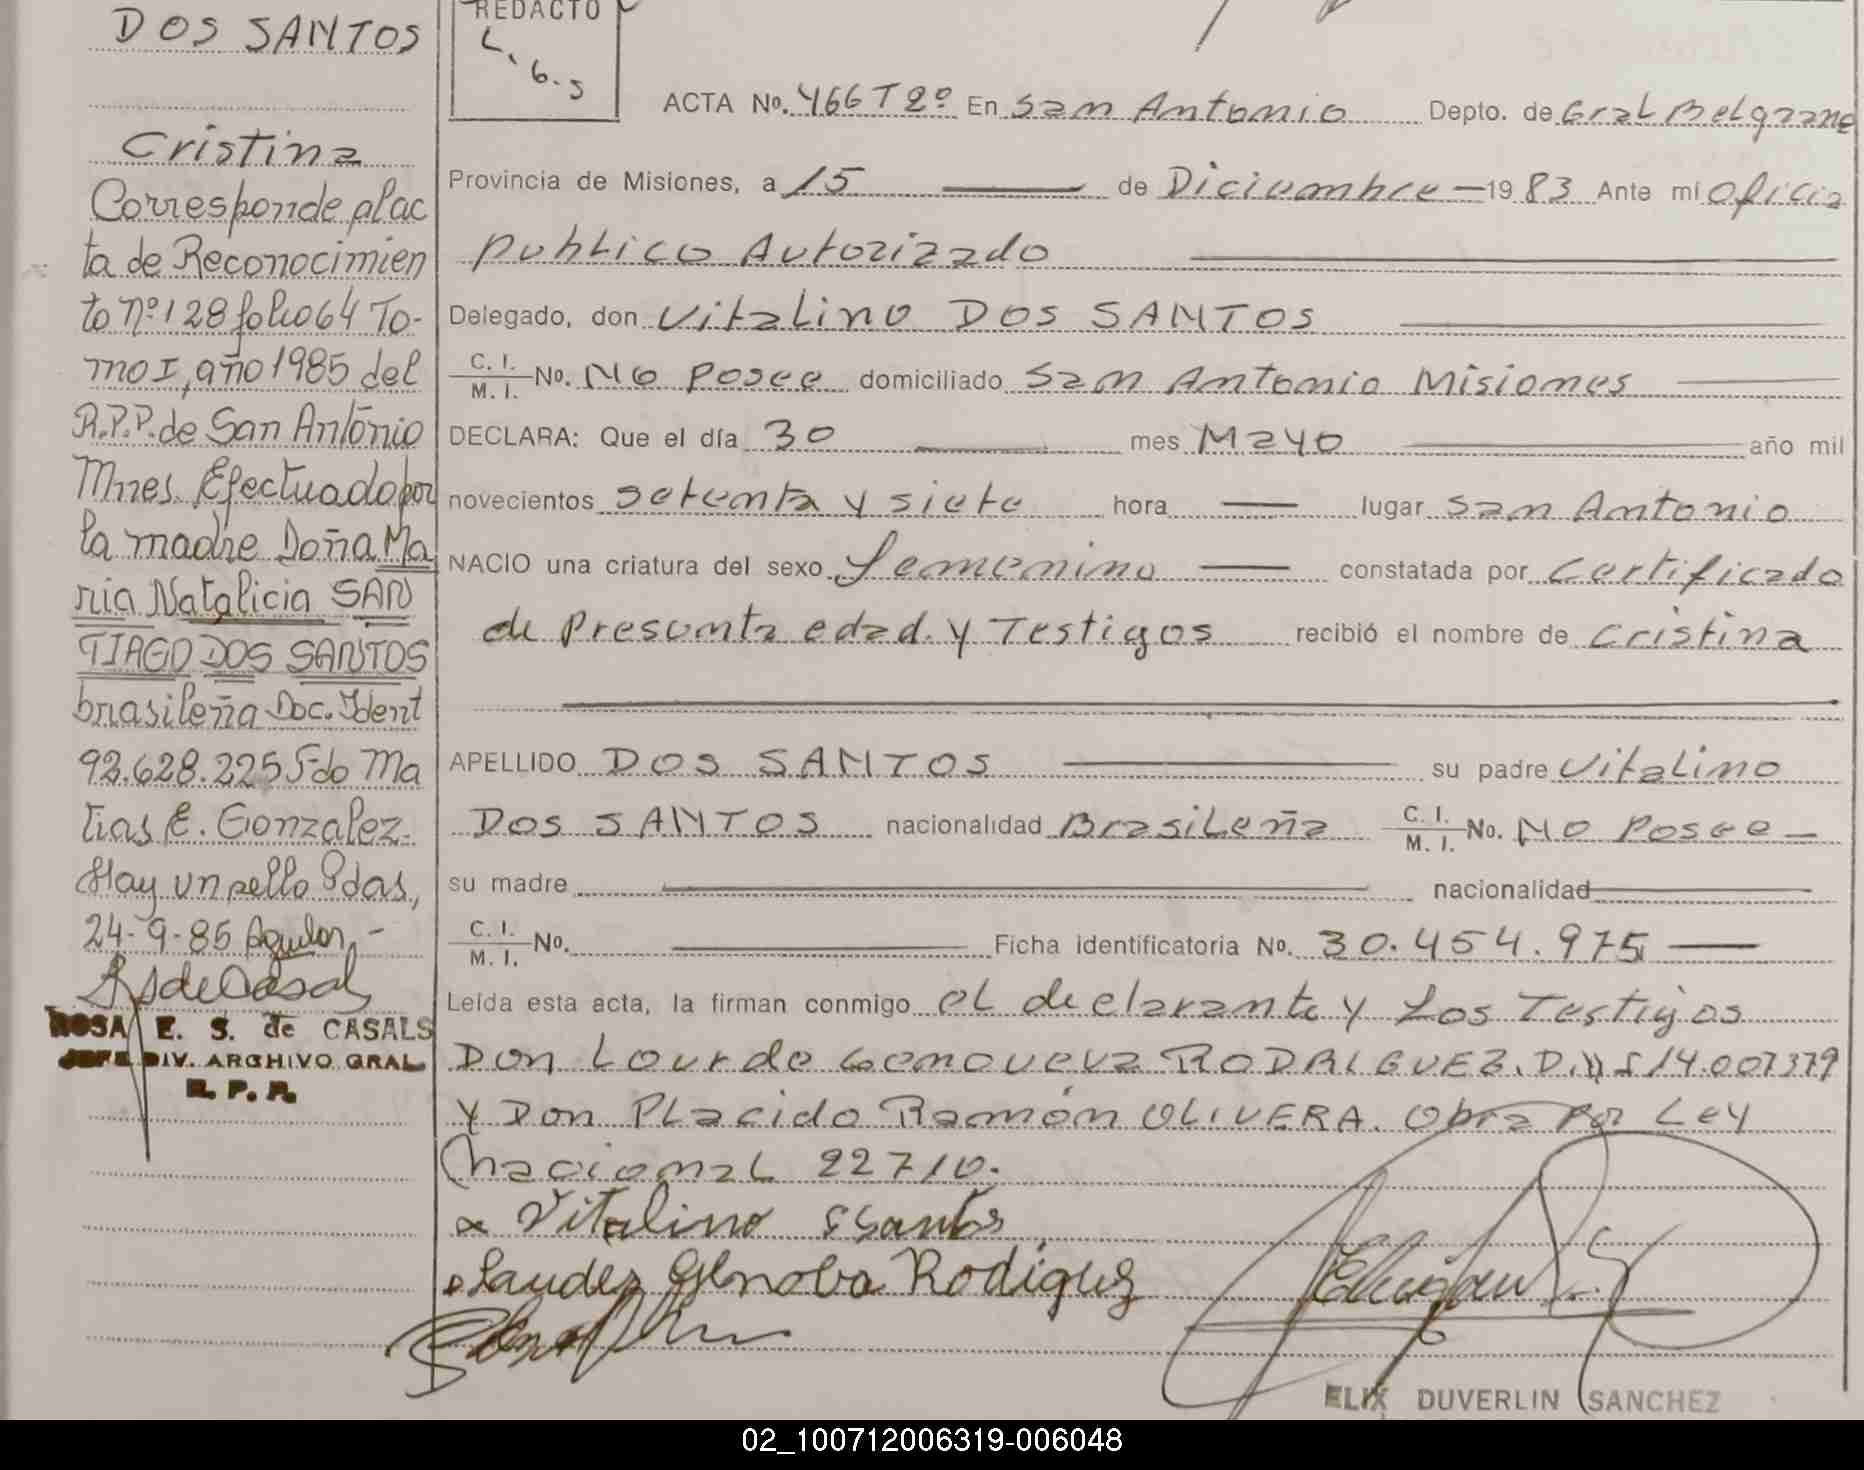 DOS SANTOS
Cristina
Corresponde al ac
ta de Reconocimien
to Nº 128 folio 64 To-
mo I, año 1985 del
R.P.P. de San Antonio
Mnes. Efectuado por
la madre Doña Ma
ria Natalicia SAN
TIAGO DOS SANTOS
brasileña Doc. Ident
92.628.225 Fdo Ma
tias E. Gonzalez.
Hay un sello Pdas,
24-9-85
ROSA E. S. de CASALS
JEFE DIV. ARCHIVO GRAL
R. P. P.
REDACTO
L. G. S
ACTA No. 466 T 2º En San Antonio Depto. de Gral Belgrano
Provincia de Misiones, a 15 — de Diciembre — 1983 Ante mí Oficial
Publico Autorizado
Delegado, don Vitalino DOS SANTOS
C. I. / M. I. No. No Posee domiciliado San Antonio Misiones
DECLARA: Que el día 30 — mes Mayo — año mil
novecientos setenta y siete hora — lugar San Antonio
NACIO una criatura del sexo Femenino — constatada por Certificado
de Presunta edad. y Testigos recibió el nombre de Cristina
APELLIDO DOS SANTOS — su padre Vitalino
DOS SANTOS nacionalidad Brasileña C. I. / M. I. No. No Posee —
su madre — nacionalidad —
C. I. / M. I. No. — Ficha identificatoria No. 30.454.975 —
Leída esta acta, la firman conmigo el declarante y Los Testigos
Don Lourde Genoveva RODRIGUEZ. D.N.I 14.007379
y Don Placido Ramón OLIVERA. Obra Por Ley
Nacional 22710.
x Vitalino Santos
Genoba Rodiguez
ELIX DUVERLIN SANCHEZ
02_100712006319-006048